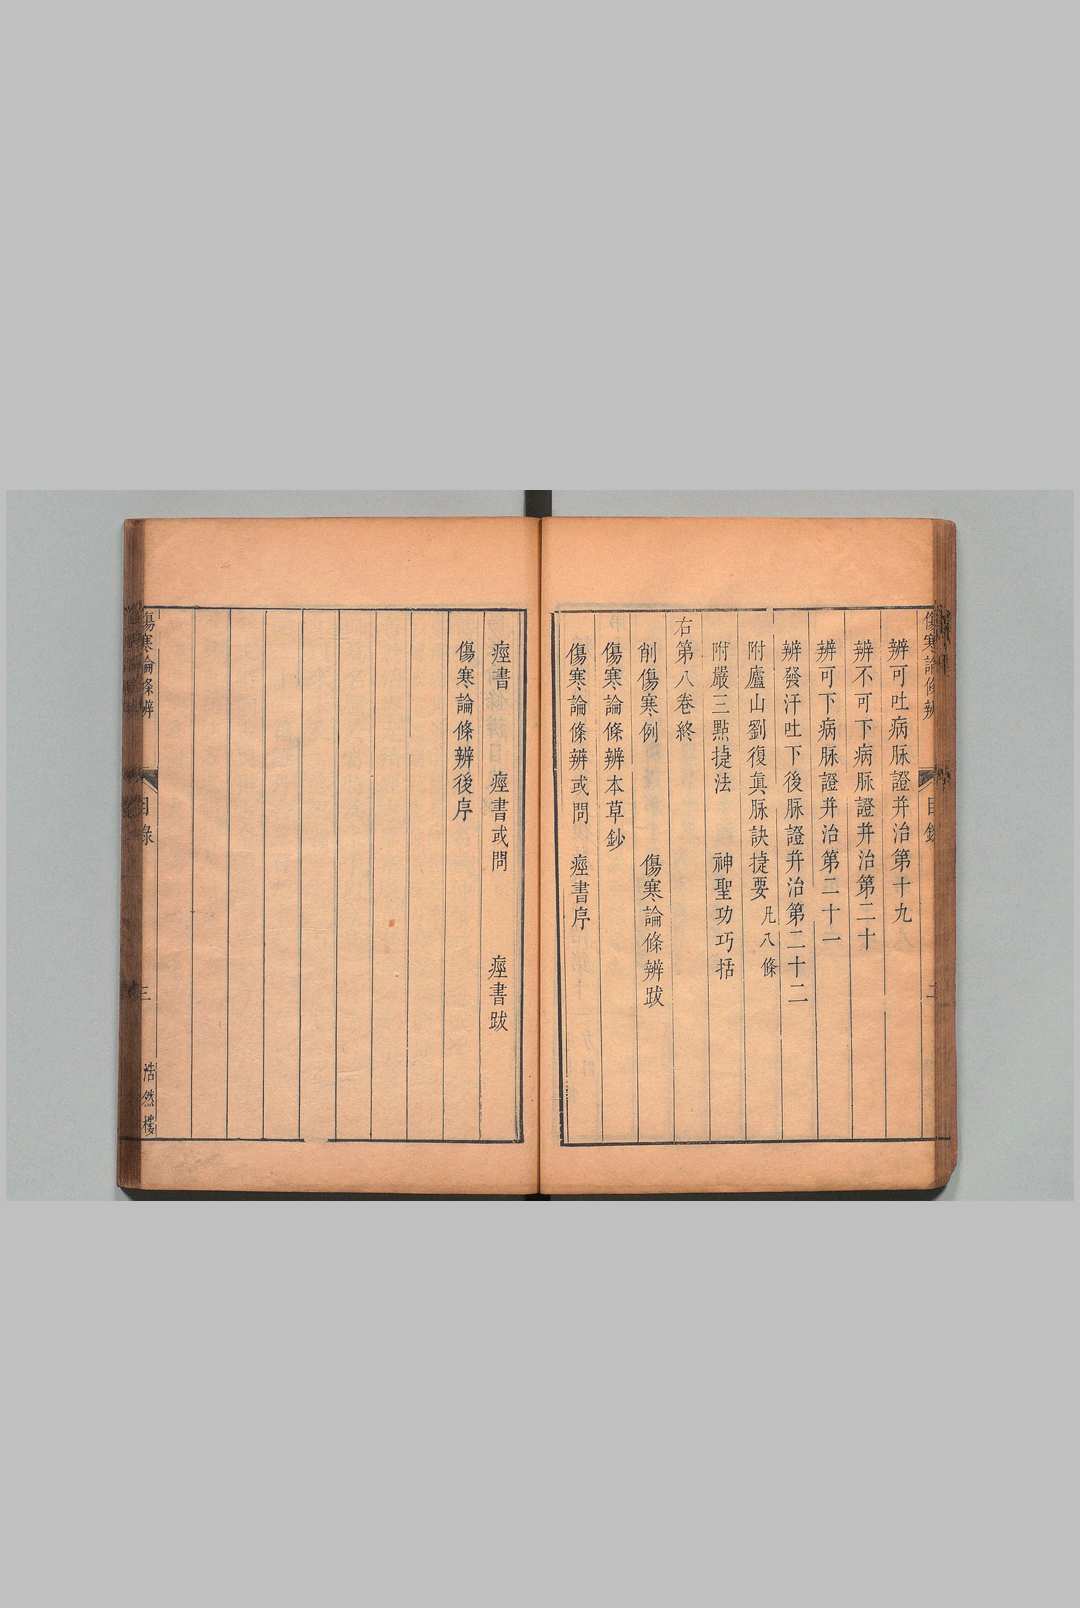 傷寒論條辨 目錄 二
辨可吐病脉證并治第十九
辨不可下病脉證并治第二十
辨可下病脉證并治第二十一
辨發汗吐下後脉證并治第二十二
附廬山劉復眞脉訣捷要 凡八條
附嚴三點捷法 神聖功巧括
右第八卷終
削傷寒例 傷寒論條辨跋
傷寒論條辨本草鈔
傷寒論條辨或問 痙書序
痙書 痙書或問 痙書跋
傷寒論條辨後序
傷寒論條辨 目錄 三 浩然樓